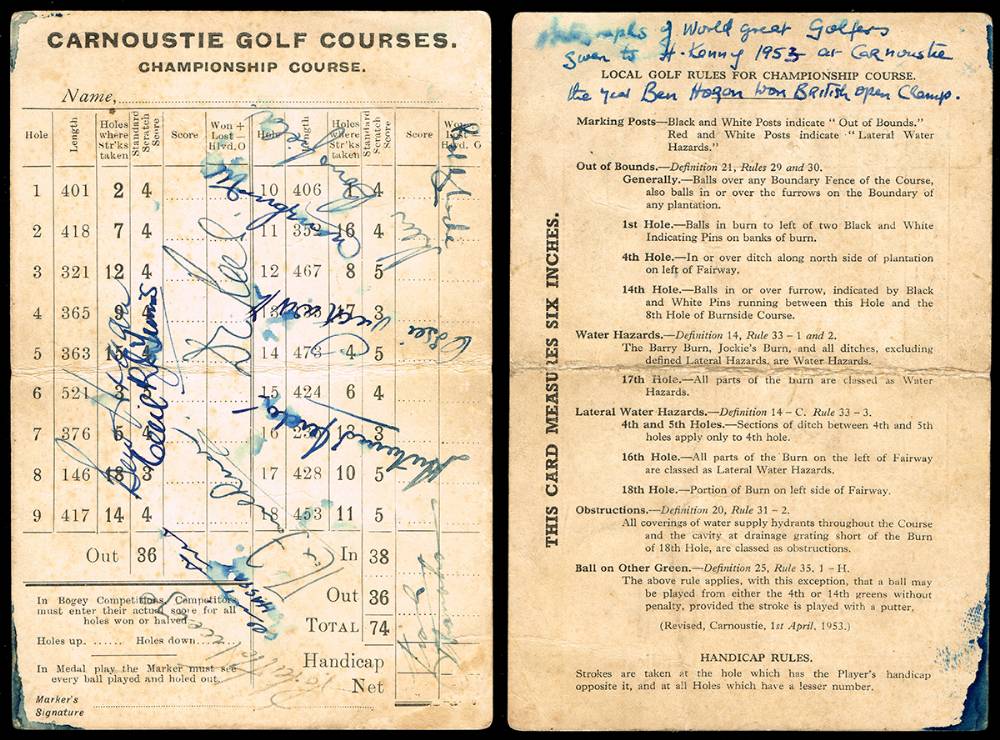 CARNOUSTIE GOLF COURSES.
CHAMPIONSHIP COURSE.
Name,
Hole Length Holes where Str'ks taken Standard Scratch Score Score Won + Lost — Hlvd, O Hole Length Holes where Str'ks taken Standard Scratch Score Score Won + Lost — Hlvd. O
1 401 2 4 10 406 4
2 418 7 4 11 16 4
3 321 12 4 12 467 8 5
4 365 4 3
5 363 4 14 473 4 5
6 521 15 424 6 4
7 376 4 16 3
8 146 18 3 17 428 10 5
9 417 14 4 18 453 11 5
Out 36 In 38
Out 36
TOTAL 74
Handicap
Net
In Bogey Competitions, Competitors
must enter their actual score for all
holes won or halved.
Holes up. ...... Holes down
In Medal play the Marker must see
every ball played and holed out.
Marker's
Signature
Ben Hogan
of World great Golfers
given to H. Kenny 1953 at Carnoustie
LOCAL GOLF RULES FOR CHAMPIONSHIP COURSE.
the year Ben Hogan Won British open Champ.
Marking Posts—Black and White Posts indicate " Out of Bounds."
Red and White Posts indicate " Lateral Water
Hazards."
Out of Bounds.—Definition 21, Rules 29 and 30.
Generally.—Balls over any Boundary Fence of the Course,
also balls in or over the furrows on the Boundary of
any plantation.
1st Hole.—Balls in burn to left of two Black and White
Indicating Pins on banks of burn.
4th Hole.—In or over ditch along north side of plantation
on left of Fairway.
14th Hole.—Balls in or over furrow, indicated by Black
and White Pins running between this Hole and the
8th Hole of Burnside Course.
Water Hazards.—Definition 14, Rule 33 – 1 and 2.
The Barry Burn, Jockie's Burn, and all ditches, excluding
defined Lateral Hazards, are Water Hazards.
17th Hole.—All parts of the burn are classed as Water
Hazards.
Lateral Water Hazards.—Definition 14 – C. Rule 33 – 3.
4th and 5th Holes.—Sections of ditch between 4th and 5th
holes apply only to 4th hole.
16th Hole.—All parts of the Burn on the left of Fairway
are classed as Lateral Water Hazards.
18th Hole.—Portion of Burn on left side of Fairway.
Obstructions.—Definition 20, Rule 31 – 2.
All coverings of water supply hydrants throughout the Course
and the cavity at drainage grating short of the Burn
of 18th Hole, are classed as obstructions.
Ball on Other Green.—Definition 25, Rule 35, 1 – H.
The above rule applies, with this exception, that a ball may
be played from either the 4th or 14th greens without
penalty, provided the stroke is played with a putter,
(Revised, Carnoustie, 1st April, 1953.)
HANDICAP RULES.
Strokes are taken at the hole which has the Player's handicap
opposite it, and at all Holes which have a lesser number.
THIS CARD MEASURES SIX INCHES.